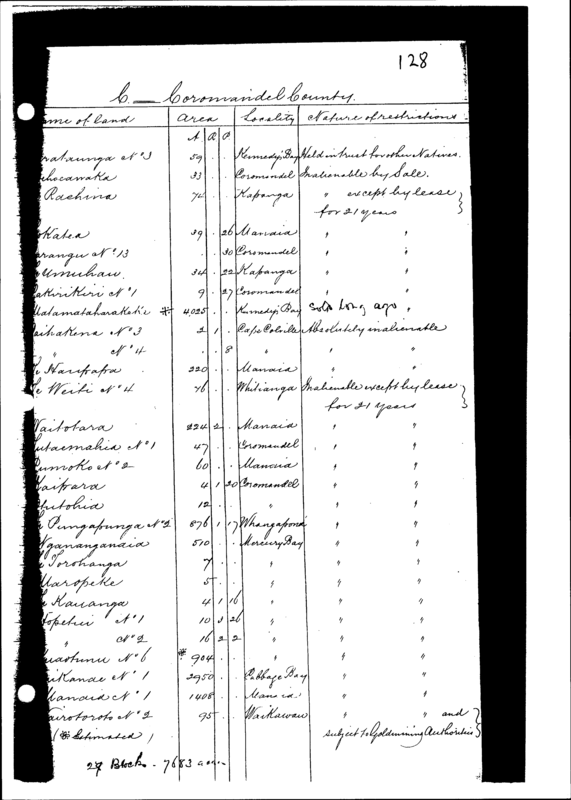 128
C. — Coromandel County.
me of land Area Locality Nature of restrictions
A R P
rataunga No 3 59 . . Kennedy's Bay Held in trust for other Natives.
hocawaka 33 . . Coromandel Inalienable by Sale.
Rachina 74 . . Kapanga " except by lease }
for 21 years }
Katea 39 . 26 Manaia " "
arangu No 13 . . 30 Coromandel " "
Umuhau 34 . 22 Kapanga " "
akirikiri No 1 9 . 27 Coromandel " "
atamataharakeke * 4025 . . Kennedy's Bay Sold long ago "
aihakena No 3 2 1 . Cape Colville Absolutely inalienable
" No 4 . . 8 " " "
e Haupapa 220 . . Manaia " "
e Weiti No 4 76 . . Whitianga Inalienable except by lease }
for 21 years }
Waitotara 224 2 . Manaia " "
utaemahia No 1 47 . . Coromandel " "
umoko No 2 60 . . Manaia " "
aipara 4 1 20 Coromandel " "
12 . . " " "
Pungapunga No 2 876 1 17 Whangapoua " "
Nganangania 510 . . Mercury Bay " "
Torohanga 7 . . " " "
Maropeke 5 . . " " "
Kauanga 4 1 16 " " "
opetui No 1 10 3 26 " " "
" No 2 16 2 2 " " "
uaotunu No 6 * 904 . . " " "
ikanae No 1 2950 . . Cabbage Bay " "
Manaia No 1 1408 . . Manaia " "
airotoroto No 2 95 . . Waikawau " " and }
(* Estimated) subject to Goldmining Authorities }
27 Blocks - 7683 acres